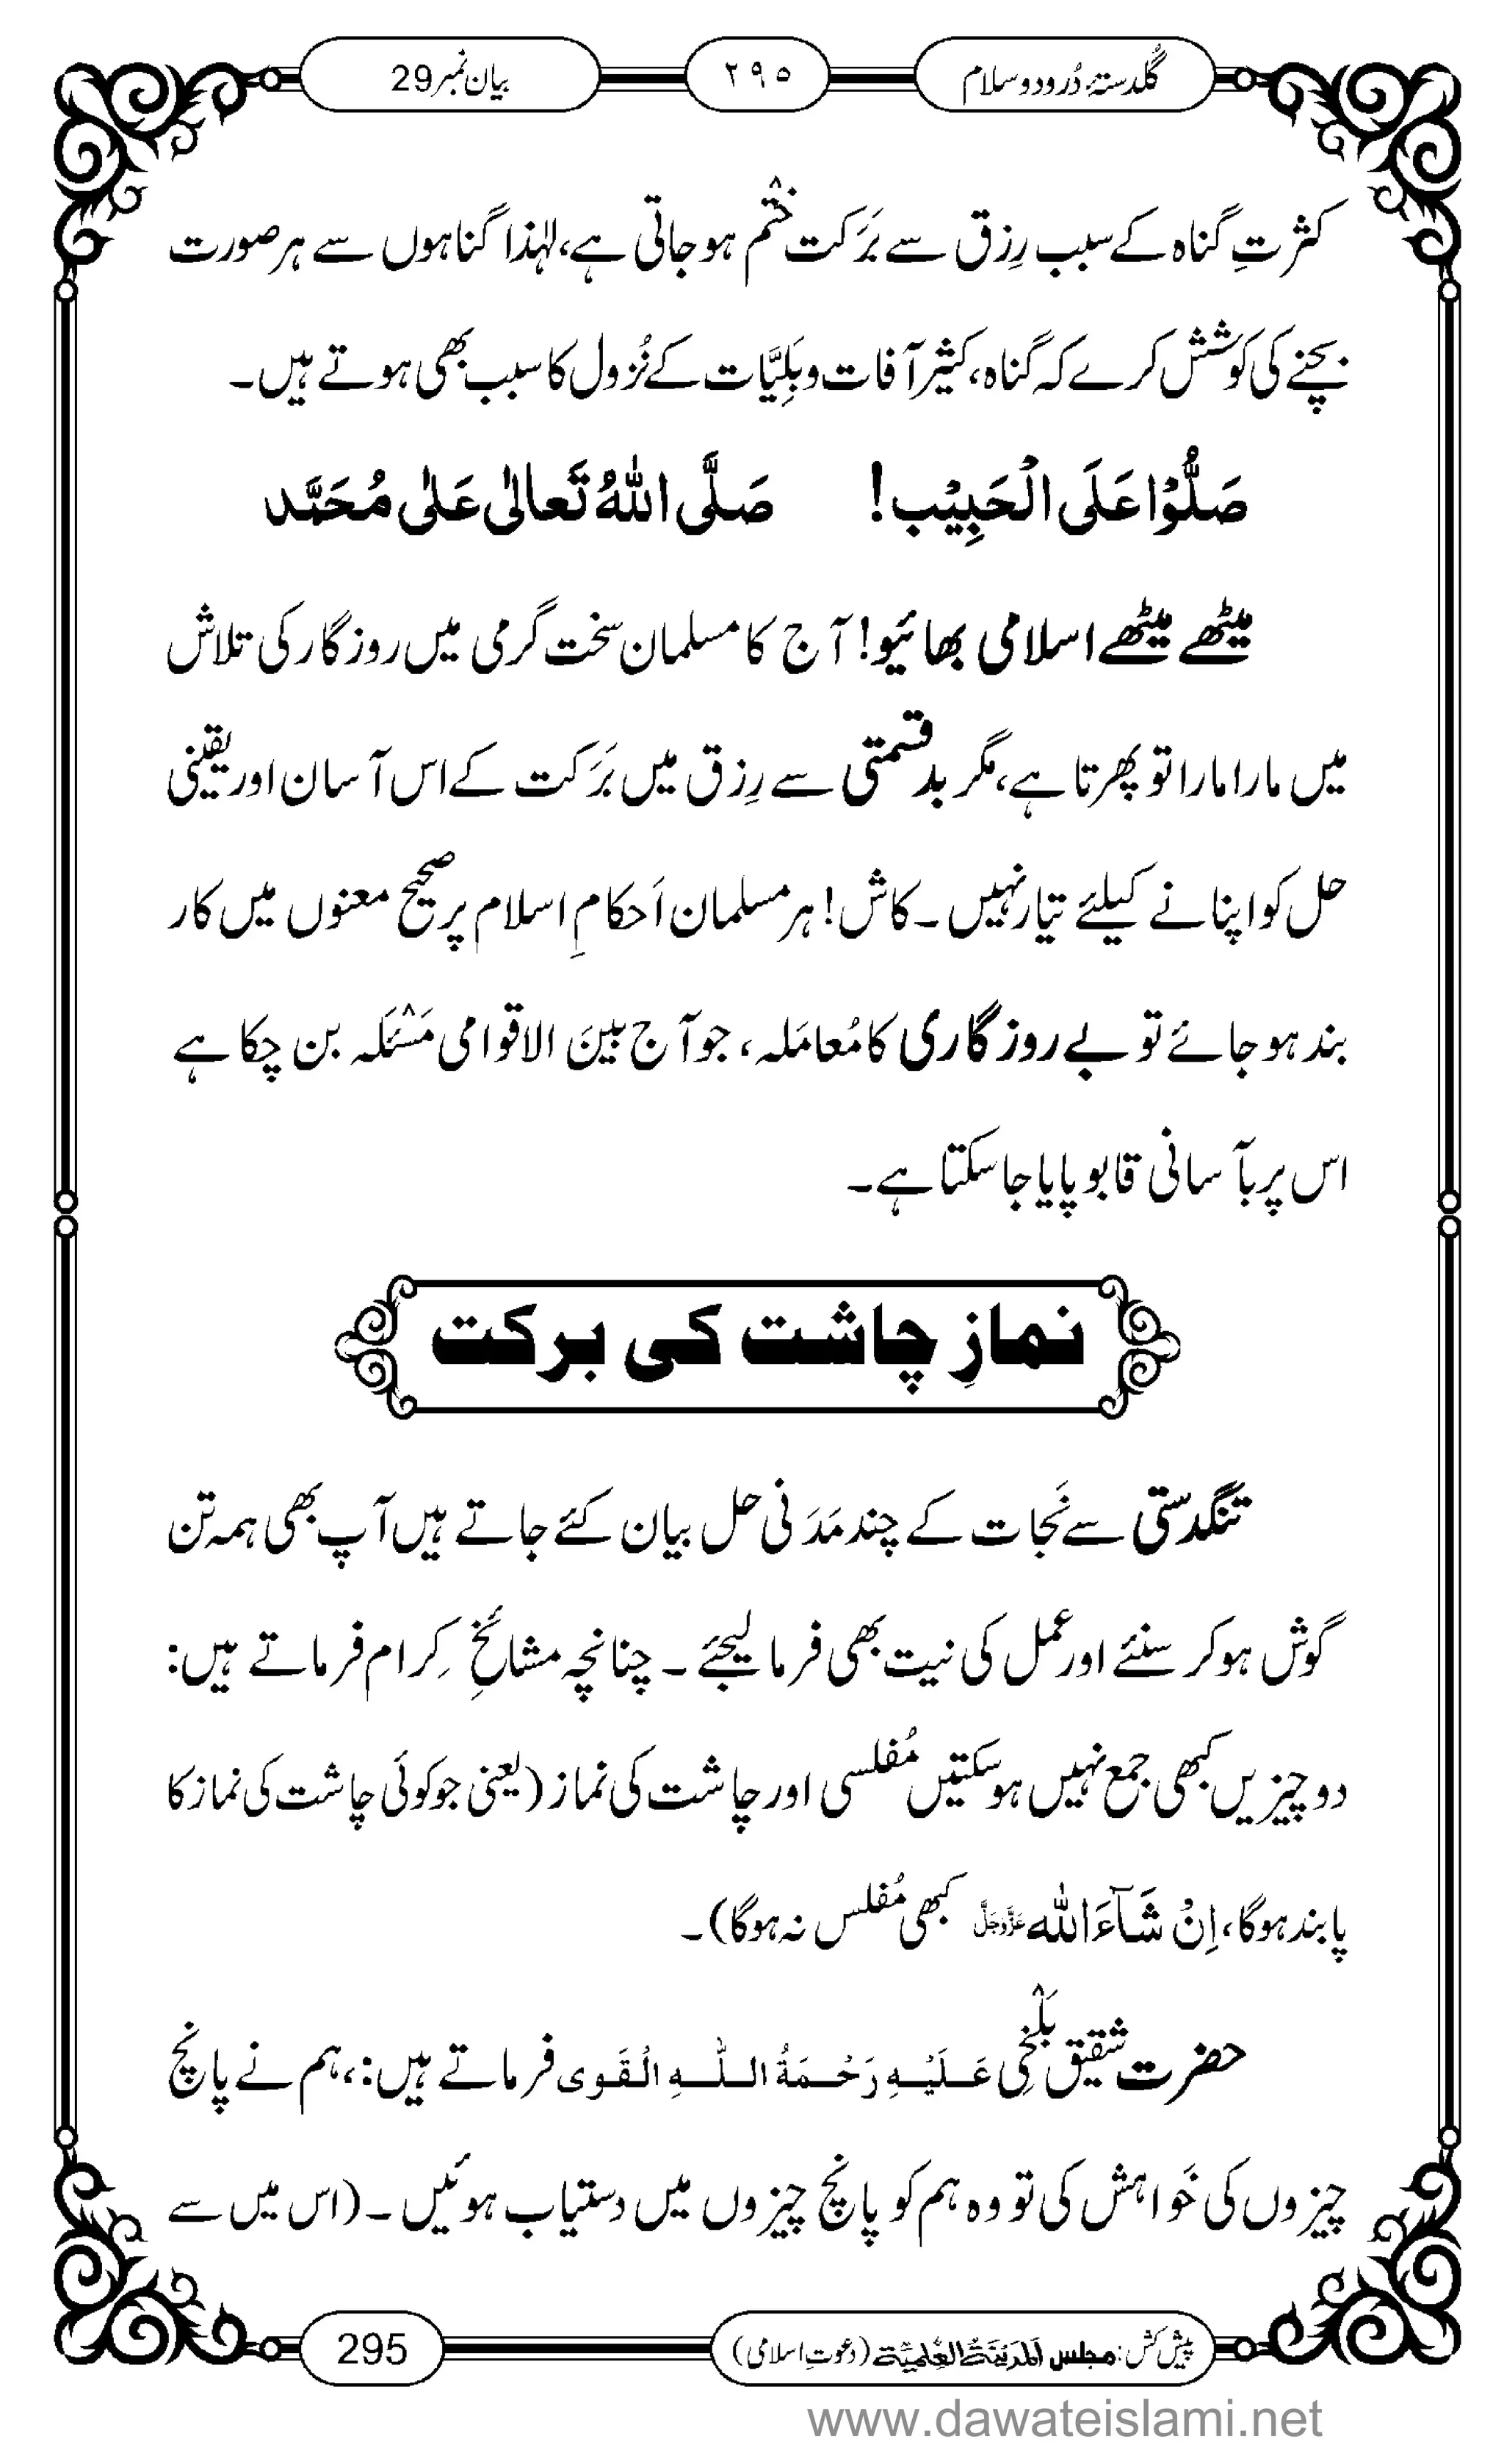 گلدستۂ دُرود و سلام ۲۹۵ بیان نمبر29
کثرتِ گناہ کے سبب رِزق سے بَرَکت خَتْم ہو جاتی ہے، لہٰذا گناہوں سے ہر صورت
بچنے کی کوشش کرے کہ گناہ، کثیر آفات و بَلِیَّات کے نُزول کا سبب بھی ہوتے ہیں۔
صَلُّوْا عَلَی الْحَبِیْب! صَلَّی اللہُ تَعالٰی عَلٰی مُحَمَّد
میٹھے میٹھے اسلامی بھائیو! آج کا مسلمان سخت گرمی میں روزگار کی تلاش
میں مارا مارا تو پھرتا ہے، مگر بدقسمتی سے رِزق میں بَرَکت کے اس آسان اور یقینی
حل کو اپنانے کیلئے تیار نہیں۔ کاش! ہر مسلمان اَحکامِ اسلام پر صحیح معنوں میں کار
بند ہو جائے تو بے روزگاری کا مُعامَلہ، جو آج بینَ الاقوامی مَسْئَلہ بن چکا ہے
اس پر بآسانی قابو پایا جاسکتا ہے۔
نمازِ چاشت کی برکت
تنگدستی سے نَجات کے چند مَدَنی حل بیان کئے جاتے ہیں آپ بھی ہمہ تن
گوش ہوکر سنئے اور عمل کی نیت بھی فرما لیجئے۔ چنانچہ مشائخِ کِرام فرماتے ہیں:
دو چیزیں کبھی جمع نہیں ہوسکتیں مُفلسی اور چاشت کی نماز (یعنی جو کوئی چاشت کی نماز کا
پابند ہوگا، اِنْ شَآءَ اللہ عَزَّوَجَلَّ کبھی مُفلس نہ ہوگا)۔
حضرت شقیق بَلْخِی عَلَیْہِ رَحْمَۃُ اللّٰہِ الْقَوِی فرماتے ہیں:، ہم نے پانچ
چیزوں کی خَواہش کی تو وہ ہم کو پانچ چیزوں میں دستیاب ہوئیں۔ (اس میں سے
پیش کش: مجلس اَلْمَدِیْنَۃُ الْعِلْمِیَّۃ (دعوتِ اسلامی) 295
www.dawateislami.net